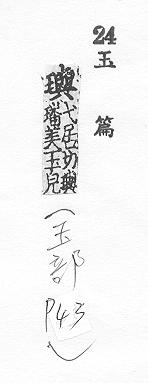 24玉篇
璵弋居切璵
璠美玉皃
(玉部P43)